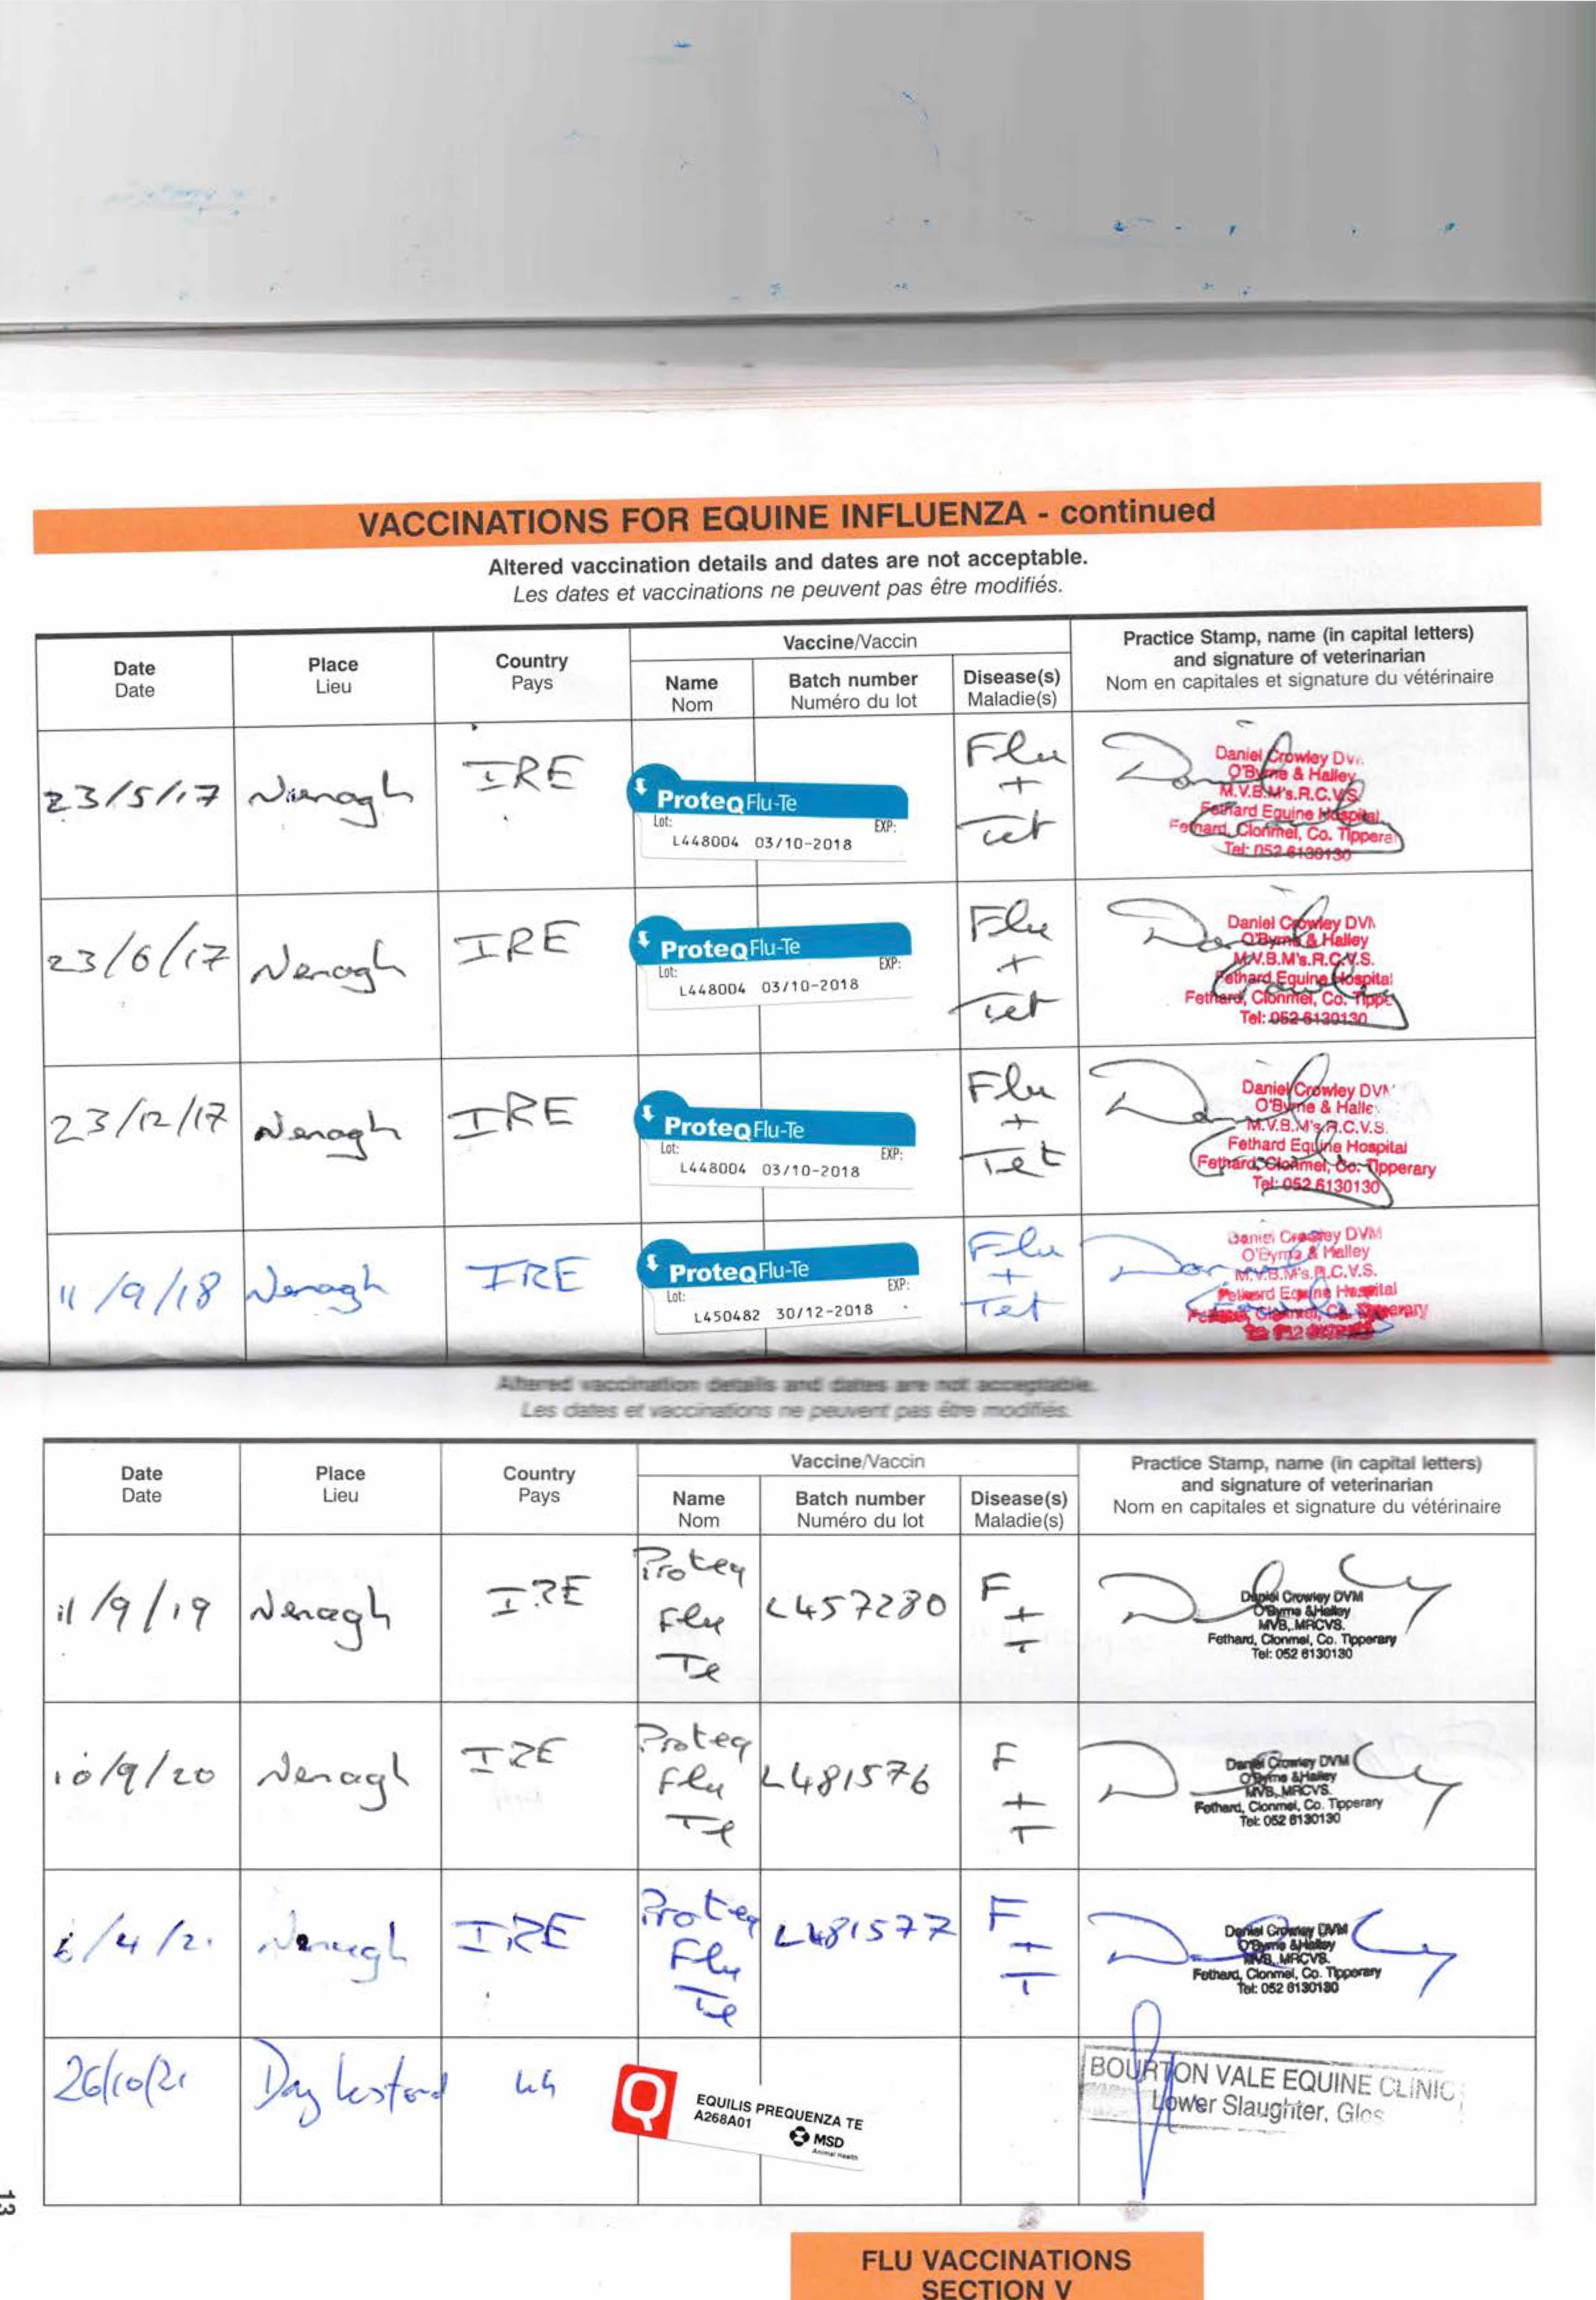 VACCINATIONS FOR EQUINE INFLUENZA - continued
Altered vaccination details and dates are not acceptable.
Les dates et vaccinations ne peuvent pas être modifiés.
Date
Date
Place
Lieu
Country
Pays
Vaccine/Vaccin
Name
Nom
Batch number
Numéro du lot
Disease(s)
Maladie(s)
Practice Stamp, name (in capital letters)
and signature of veterinarian
Nom en capitales et signature du vétérinaire
23/5/17
Nenagh
IRE
ProteqFlu-Te
Lot:
EXP:
L448004 03/10-2018
Flu
+
Tet
Daniel Crowley
O'Byrne & Halley
M.V.B.M's.R.C.V.S.
Fethard Equine Hospital
Fethard, Clonmel, Co. Tippera
Tel: 052 6130130
23/6/17
Nenagh
IRE
ProteqFlu-Te
Lot:
EXP:
L448004 03/10-2018
Flu
+
Tet
Daniel Crowley DVM
O'Byrne & Halley
M.V.B.M's.R.C.V.S.
Fethard Equine Hospital
Fethard, Clonmel, Co. Tippe
Tel: 052 6130130
23/12/17
Nenagh
IRE
ProteqFlu-Te
Lot:
EXP:
L448004 03/10-2018
Flu
+
Tet
Daniel Crowley DVM
O'Byrne & Halle
M.V.B.M's.R.C.V.S.
Fethard Equine Hospital
Fethard, Clonmel, Co. Tipperary
Tel: 052 6130130
11/9/18
Nenagh
IRE
ProteqFlu-Te
Lot:
EXP:
L450482 30/12-2018
Flu
+
Tet
Daniel Crowley DVM
O'Byrne & Halley
M.V.B.M's.R.C.V.S.
Fethard Equine Hospital
Fethard, Clonmel, Co. Tipperary
Altered vaccination details and dates are not acceptable.
Les dates et vaccinations ne peuvent pas être modifiés.
Date
Date
Place
Lieu
Country
Pays
Vaccine/Vaccin
Name
Nom
Batch number
Numéro du lot
Disease(s)
Maladie(s)
Practice Stamp, name (in capital letters)
and signature of veterinarian
Nom en capitales et signature du vétérinaire
11/9/19
Nenagh
IRE
Proteq
Flu
Te
L457280
F
+
T
Daniel Crowley DVM
O'Byrne & Halley
MVB, MRCVS.
Fethard, Clonmel, Co. Tipperary
Tel: 052 6130130
10/9/20
Nenagh
IRE
Proteq
Flu
Te
L481576
F
+
T
Daniel Crowley DVM
O'Byrne & Halley
MVB, MRCVS.
Fethard, Clonmel, Co. Tipperary
Tel: 052 6130130
6/4/21
Nenagh
IRE
Proteq
Flu
Te
L481577
F
+
T
Daniel Crowley DVM
O'Byrne & Halley
MVB, MRCVS.
Fethard, Clonmel, Co. Tipperary
Tel: 052 6130130
26/10/21
Daylesford
Q
EQUILIS PREQUENZA TE
A268A01
MSD
Animal Health
BOURTON VALE EQUINE CLINIC
Lower Slaughter, Glos
13
FLU VACCINATIONS
SECTION V